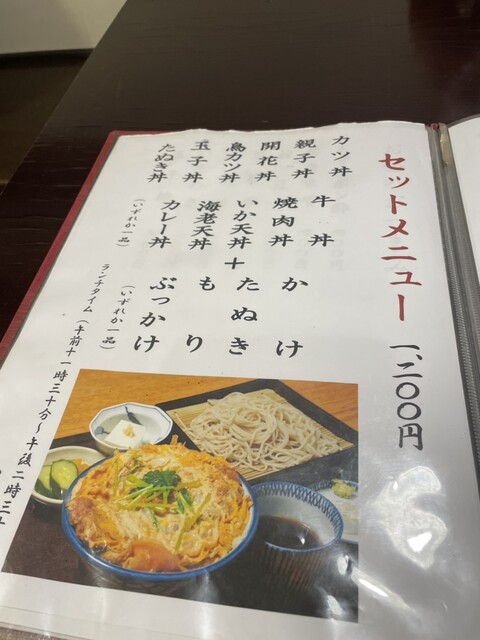 セットメニュー 一、二〇〇円
カツ丼
親子丼
開花丼
鳥カツ丼
玉子丼
たぬき丼
牛丼
焼肉丼
いか天丼
海老天丼
カレー丼
（いずれか一品）
＋
かけ
たぬき
もり
ぶっかけ
（いずれか一品）
ランチタイム（午前十一時三十分～午後二時三十